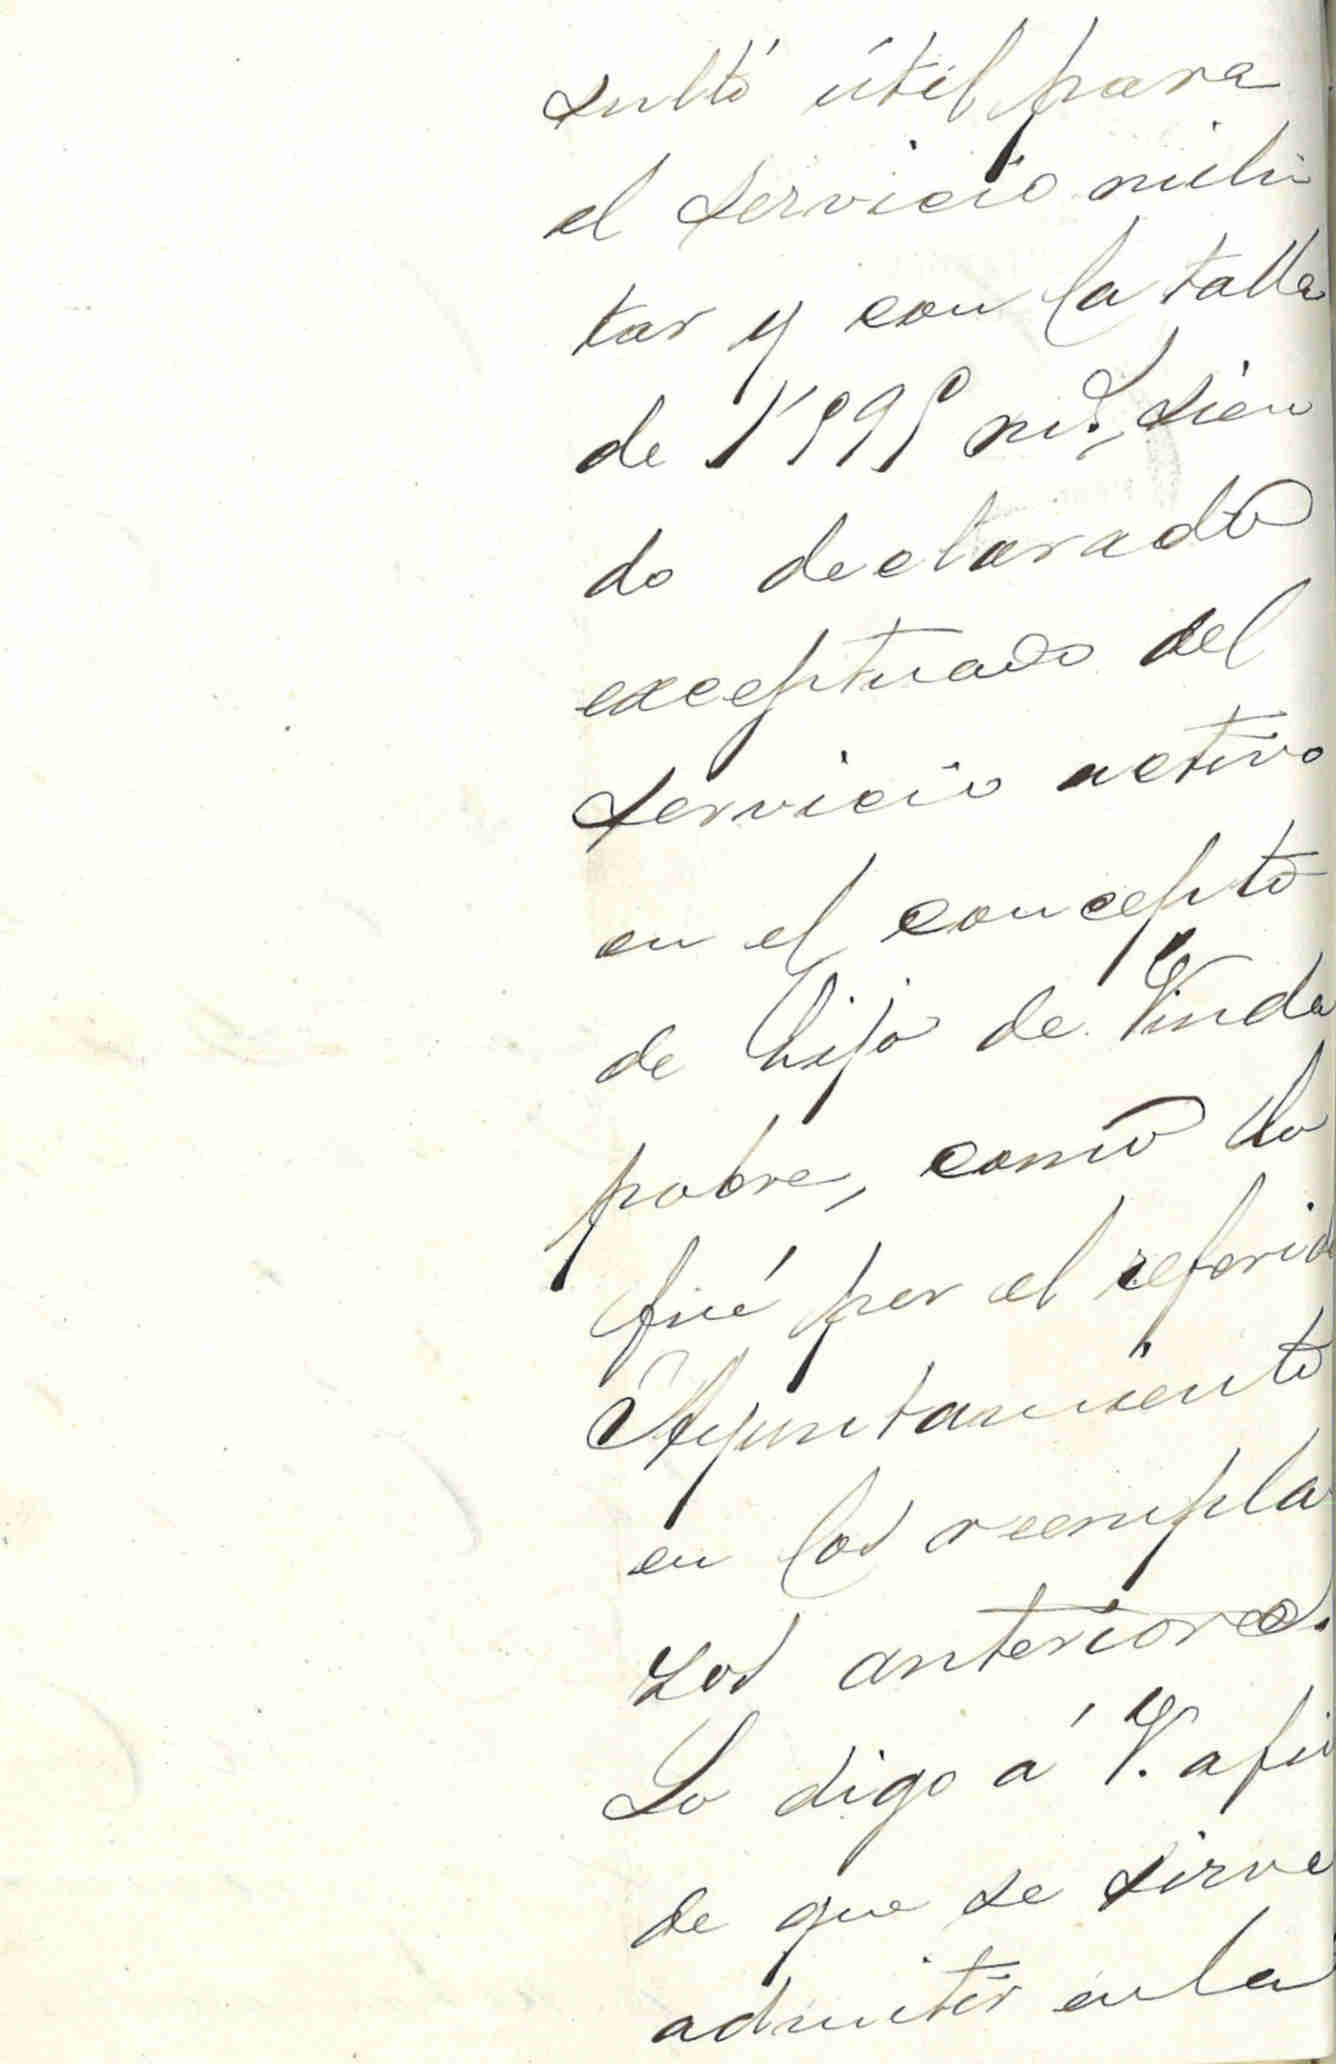 sultó útil para
el servicio mili
tar y con la talla
de 1'595 m.s, sien
do declarado
exceptuado del
servicio activo
en el concepto
de hijo de Viuda
pobre, como lo
fué por el referido
Ayuntamiento
en los reempla
zos anteriores.
Lo digo á V. a fin
de que se sirva
admitir en la